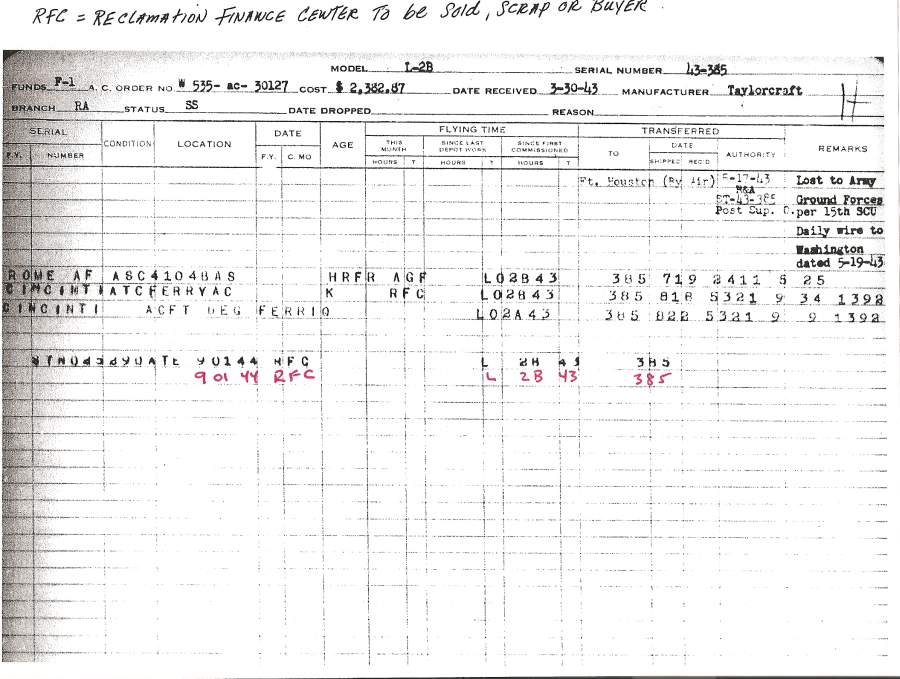 RFC = RECLAMATION FINANCE CENTER TO be SOLD, SCRAP OR BUYER.
MODEL L-2B SERIAL NUMBER 43-385
FUNDS F-1 A. C. ORDER NO W 535- ac- 30127 COST $ 2,382.87 DATE RECEIVED 3-30-43 MANUFACTURER Taylorcraft
BRANCH RA STATUS SS DATE DROPPED REASON
SERIAL CONDITION LOCATION DATE AGE FLYING TIME TRANSFERRED REMARKS
THIS MONTH SINCE LAST DEPOT WORK SINCE FIRST COMMISSIONED TO DATE AUTHORITY
F.Y. NUMBER F.Y. C. MO HOURS T HOURS T HOURS T SHIPPED REC'D
Ft. Houston (By Air) -17-43 Lost to Army
R&A
-43-385 Ground Forces
Post Sup. O. per 15th SCU
Daily wire to
Washington
dated 5-19-43
ROME AF ASC41048AS HRFR AGF L02B43 385 719 2411 5 25
CINCINTIATCFERRYAC K RFC L02B43 385 818 5321 9 34 1392
CINCINTI ACFT DEG FERRIQ L02A43 385 822 5321 9 9 1392
90144 RFC L 2B 43 385
9 01 44 RFC L 2B 43 385